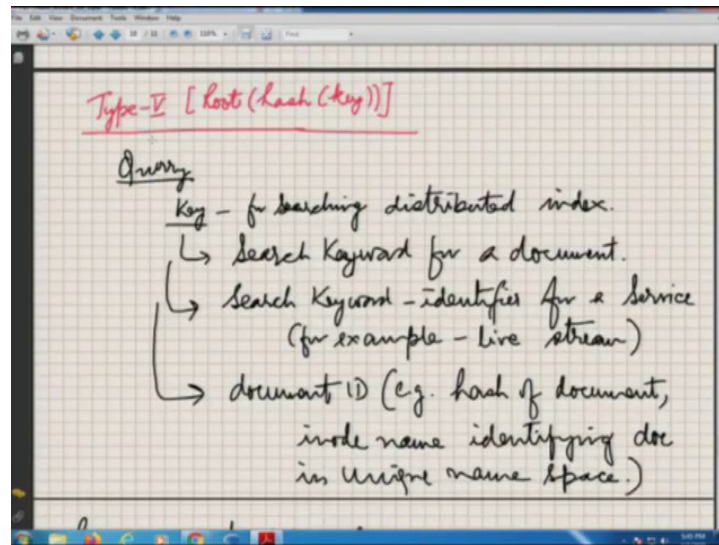 File Edit View Document Tools Window Help
110% Find
Type-V [Root(hash(key))]
Query
Key - for searching distributed index.
↳ Search Keyword for a document.
↳ Search Keyword - identifier for a Service
(for example - Live stream)
↳ document ID (e.g. hash of document,
inode name identifying doc
in unique name space.)
5:45 PM